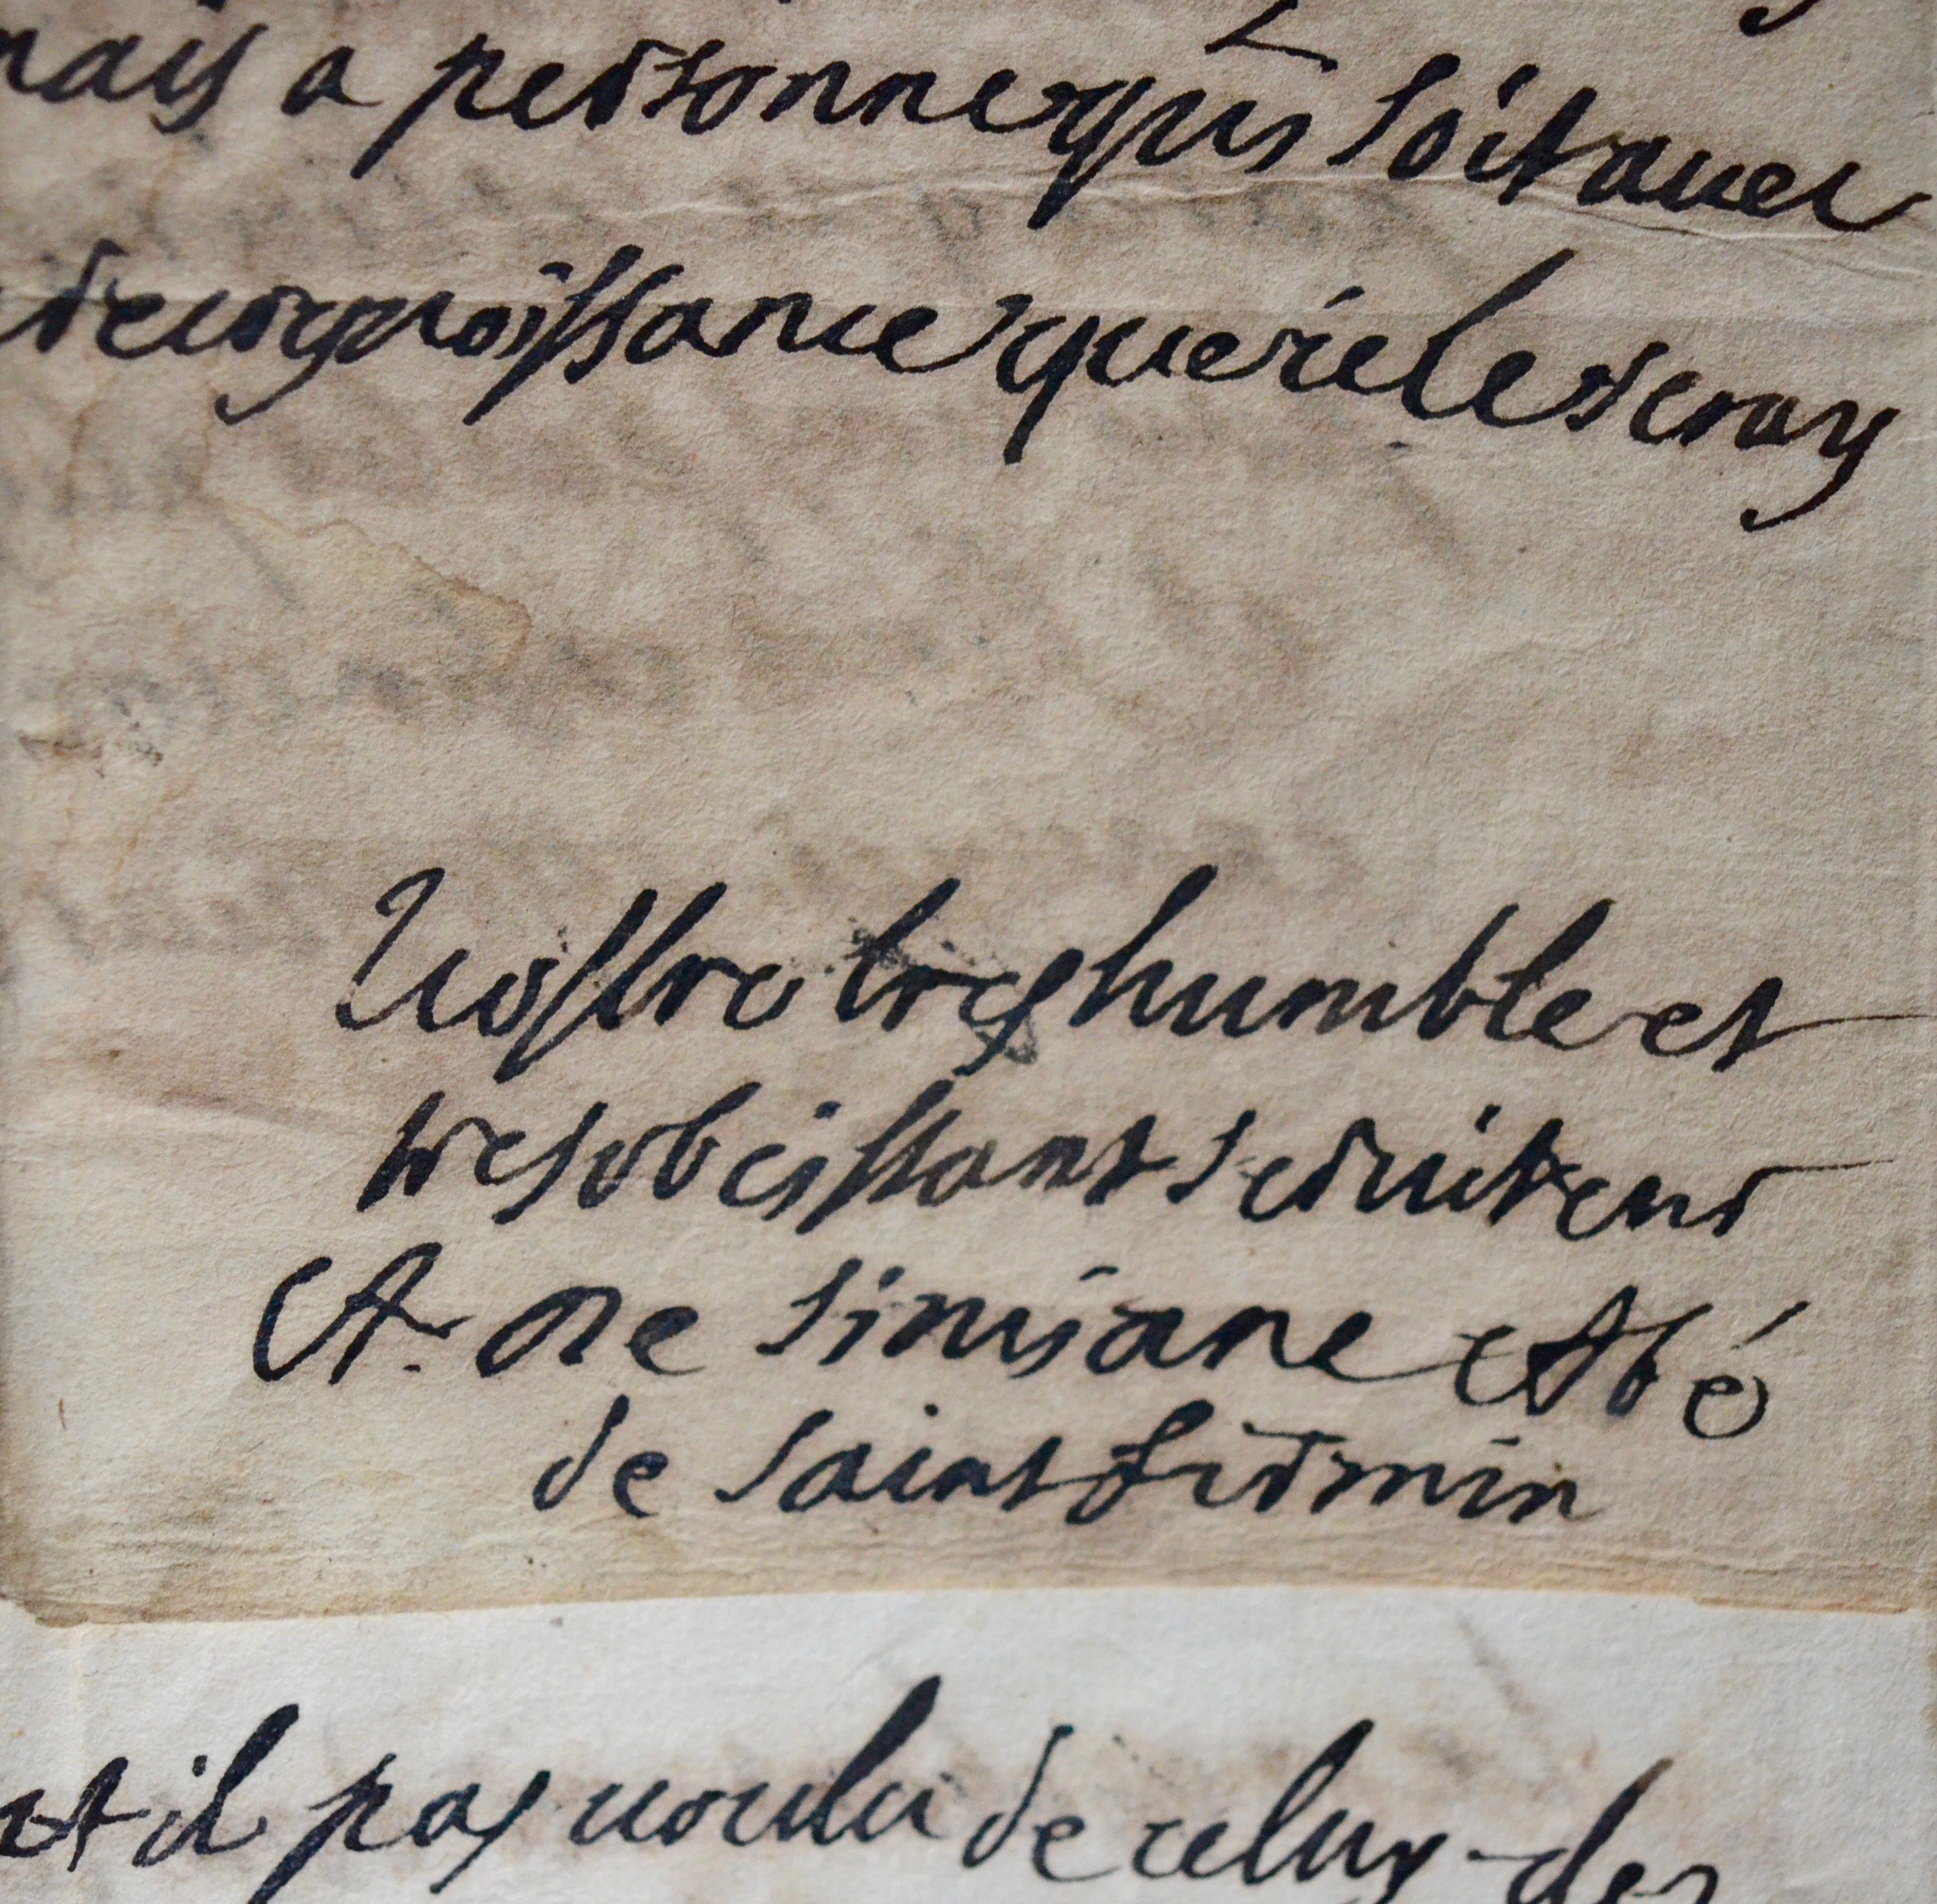 mais a personne qui soit auec
de cognoissance que ie le seray
Uostre tres humble et
tres obeissant seruiteur
A. De Simiane Abé
de saint firmin
il pas uoulu de celuy des